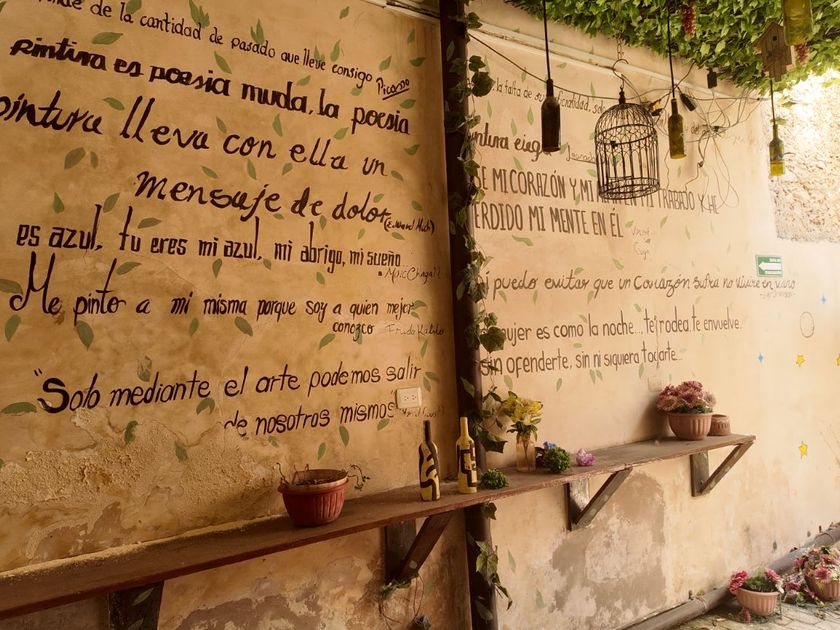 de la cantidad de pasado que lleve consigo Picasso
pintura es poesia muda, la poesia
pintura lleva con ella un
mensaje de dolor
es azul, tu eres mi azul, mi abrigo, mi sueño
Me pinto a mi misma porque soy a quien mejor
conozco Frida Kahlo
"Solo mediante el arte podemos salir
de nosotros mismos"
la falta de
ciega
MI CORAZÓN Y MI EN MI TRABAJO Y HE
ERDIDO MI MENTE EN ÉL
puedo evitar que un Corazón sufra no viviré en vano
mujer es como la noche... te rodea, te envuelve.
sin ofenderte, sin ni siquiera tocarte...